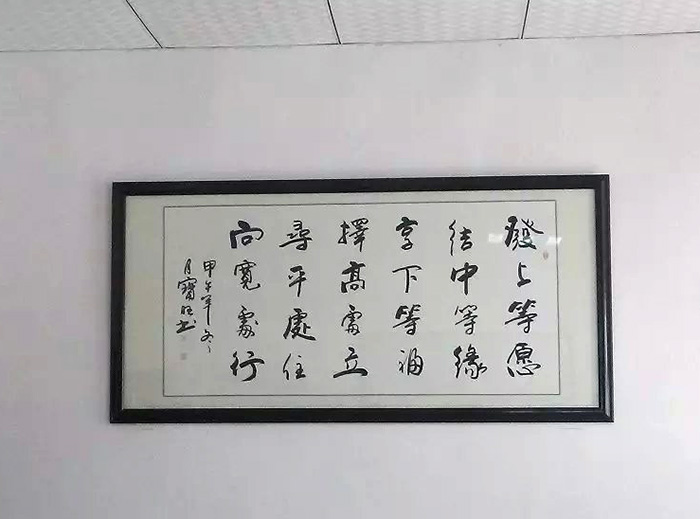 發上等愿
结中等緣
享下等福
擇高處立
尋平處住
向寬處行
甲午年冬
月寶旺书